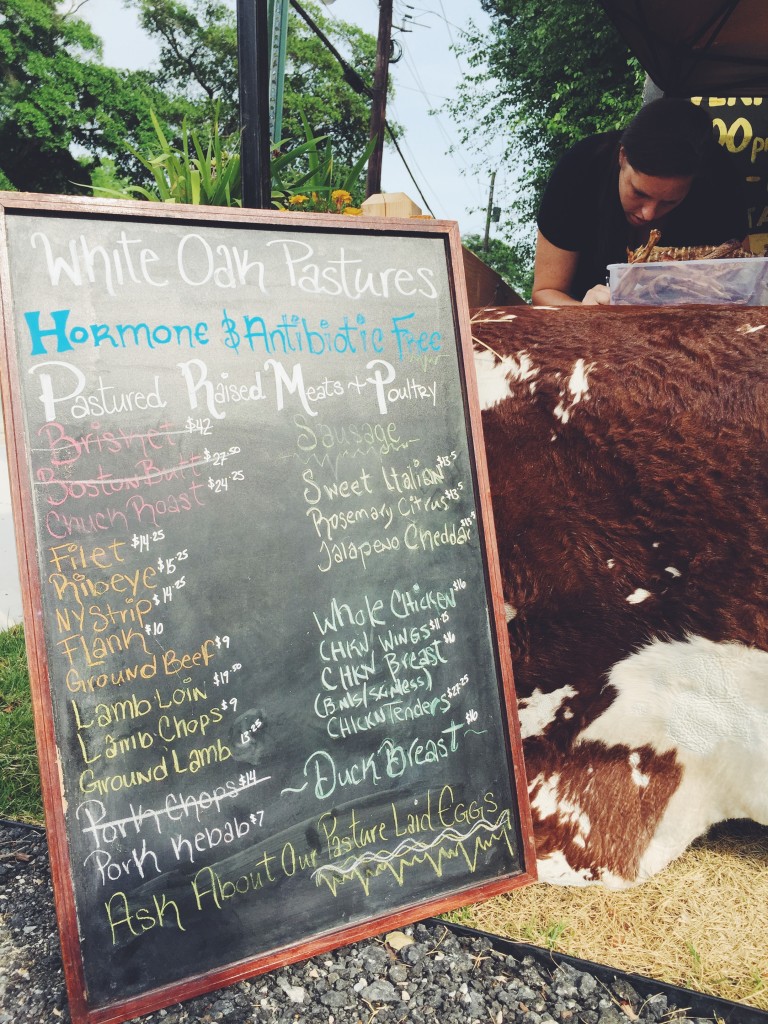 White Oak Pastures
Hormone & Antibiotic Free
Pastured Raised Meats + Poultry
Brisket $42
Boston Butt $27.50
Chuck Roast $24.25
Filet $14.25
Ribeye $15.25
NY Strip $14.25
Flank $10
Ground Beef $9
Lamb Loin $19.50
Lamb Chops $9
Ground Lamb 13.25
Pork Chops $14
Pork Kebab $7
Sausage
Sweet Italian $13.5
Rosemary Citrus $13.5
Jalapeno Cheddar $13.5
Whole Chicken $16
CHKN Wings $11.25
CHKN Breast $16
(Bnls/Sknless)
CHICKN Tenders $27.25
~Duck Breast~ $16
Ask About Our Pasture Laid Eggs